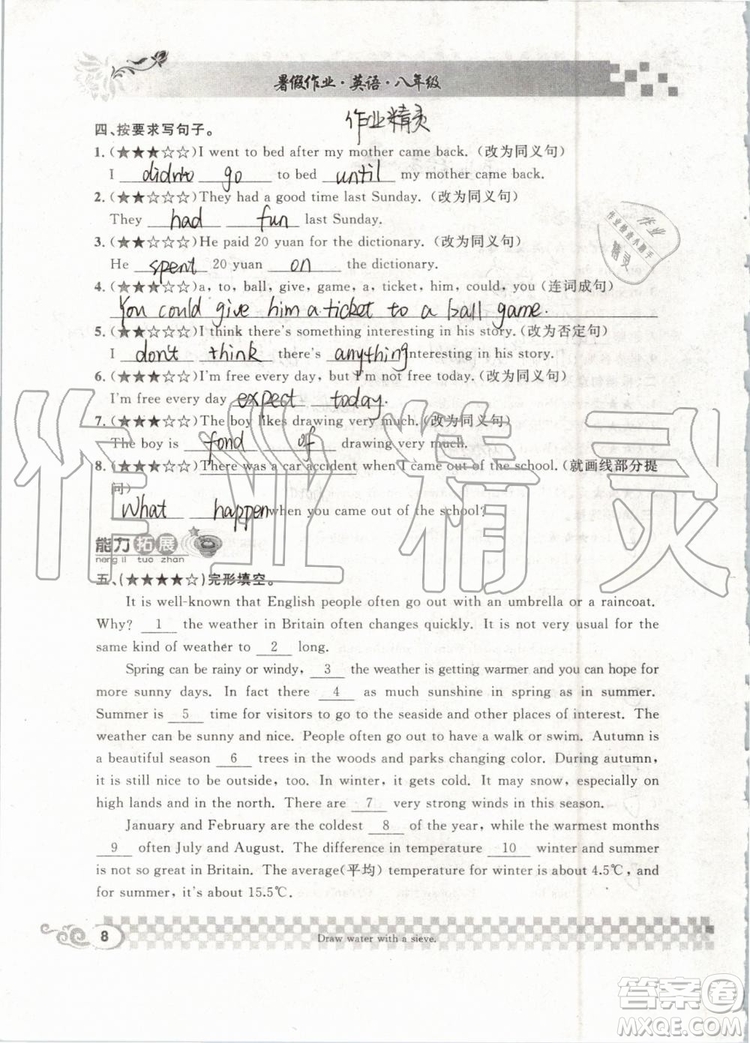 暑假作业·英语·八年级
四、按要求写句子。
作业精灵
1. (★★★☆☆)I went to bed after my mother came back. (改为同义句)
I didnto go to bed until my mother came back.
2. (★★☆☆☆)They had a good time last Sunday. (改为同义句)
They had fun last Sunday.
3. (★★★☆☆)He paid 20 yuan for the dictionary. (改为同义句)
He spent 20 yuan on the dictionary.
4. (★★★☆☆)a, to, ball, give, game, a, ticket, him, could, you (连词成句)
You could give him a ticket to a ball game.
5. (★★★☆☆)I think there's something interesting in his story. (改为否定句)
I don't think there's anything interesting in his story.
6. (★★★☆☆)I'm free every day, but I'm not free today. (改为同义句)
I'm free every day expect today.
7. (★★★☆☆)The boy likes drawing very much. (改为同义句)
The boy is fond of drawing very much.
8. (★★★☆☆)There was a car accident when I came out of the school. (就画线部分提
问)
What happen when you came out of the school?
能力拓展
neng li tuo zhan
五、(★★★★☆)完形填空。
It is well-known that English people often go out with an umbrella or a raincoat.
Why? 1 the weather in Britain often changes quickly. It is difficult to find the
same kind of weather to 2 long.
Spring can be rainy or windy, 3 the weather is getting warmer and you can find
more sunny days. In fact there 4 as much sunshine in spring as in summer.
Summer is 5 time for visitors to go to the seaside and other places of interest. The
weather can be sunny and nice. People often go out to have a walk or swim. Autumn is
a beautiful season 6 trees in the woods and parks changing color. During autumn,
it is still nice to be outside, too. In winter, it gets colder. It may snow, especially on
high lands and in the north. There are 7 very strong winds in this season.
January and February are the coldest 8 of the year, while the warmest months
9 often July and August. The difference in temperature 10 winter and summer
is not so great in Britain. The average(平均) temperature for winter is about 4.5℃, and
for summer, it's about 15.5℃.
8
Draw water with a sieve.
作业精灵
答案圈
MXQE.COM